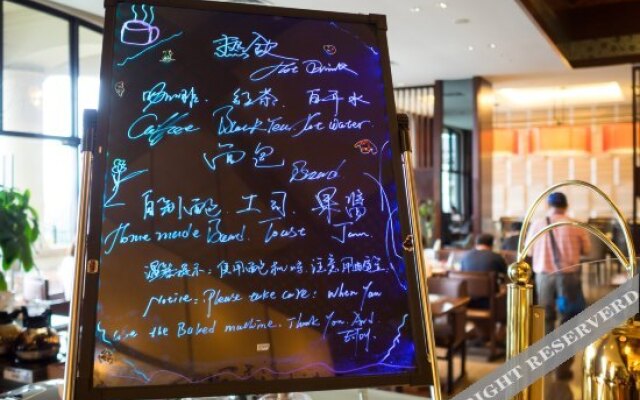 热饮
Hot Drink
咖啡. 红茶. 百开水
Coffee Black Tea. Hot water
面包
Bread
自制面包. 土司. 果酱
Home made Bread. Toast Jam.
温馨提示: 使用 注意用电安全
Notice: Please take care: When You
Use the Baked machine. Thank You. And
Enjoy
RIGHT RESERVED